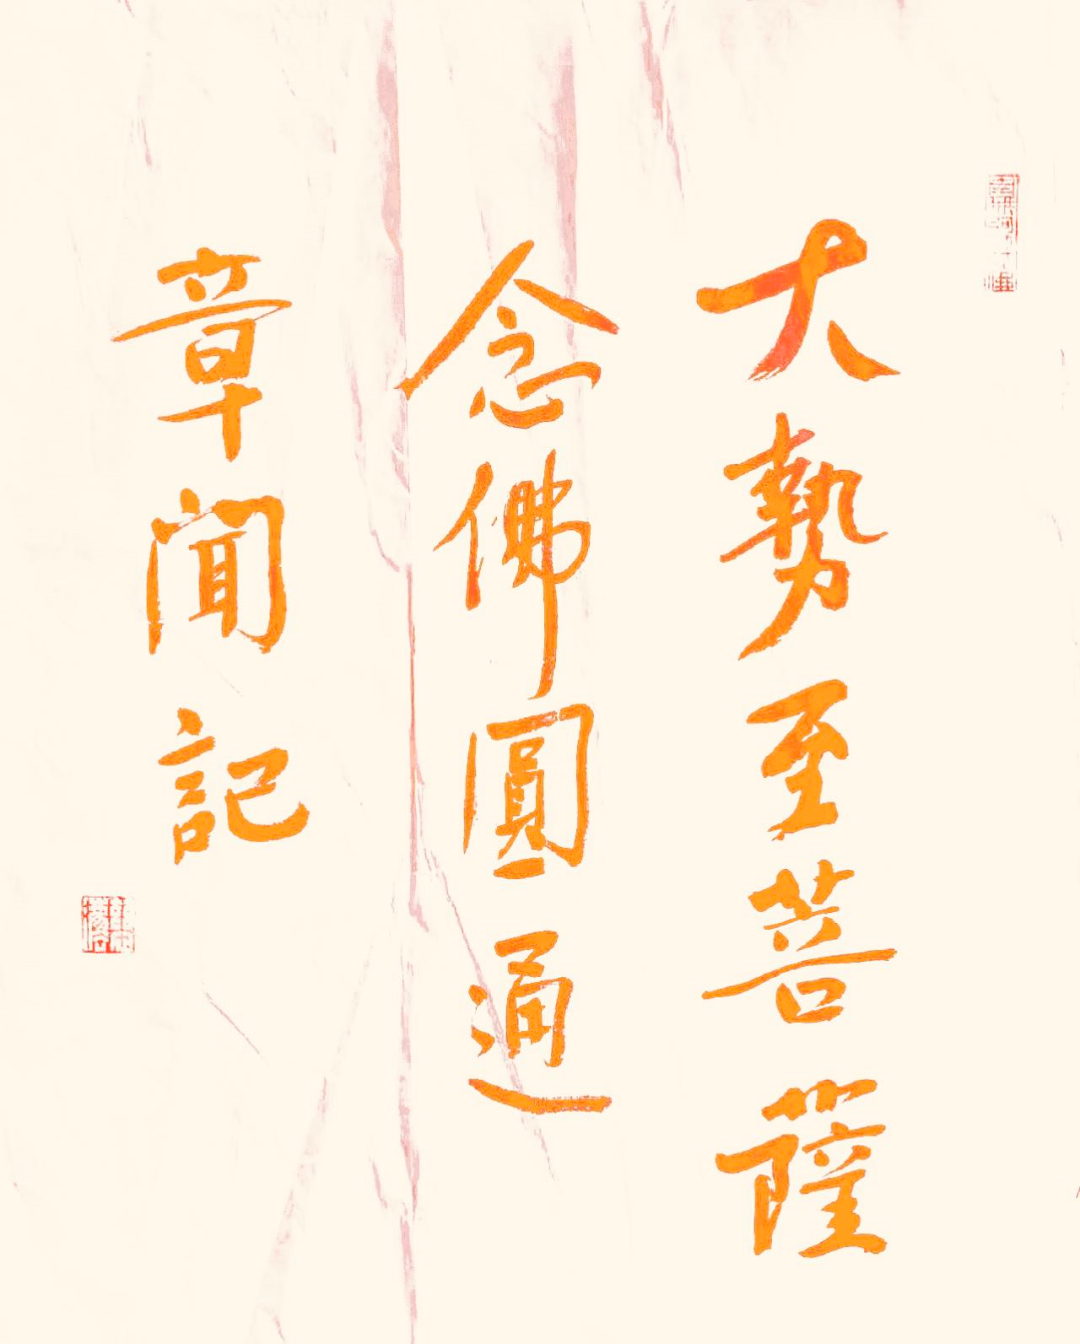 大勢至菩薩
念佛圓通
章聞記